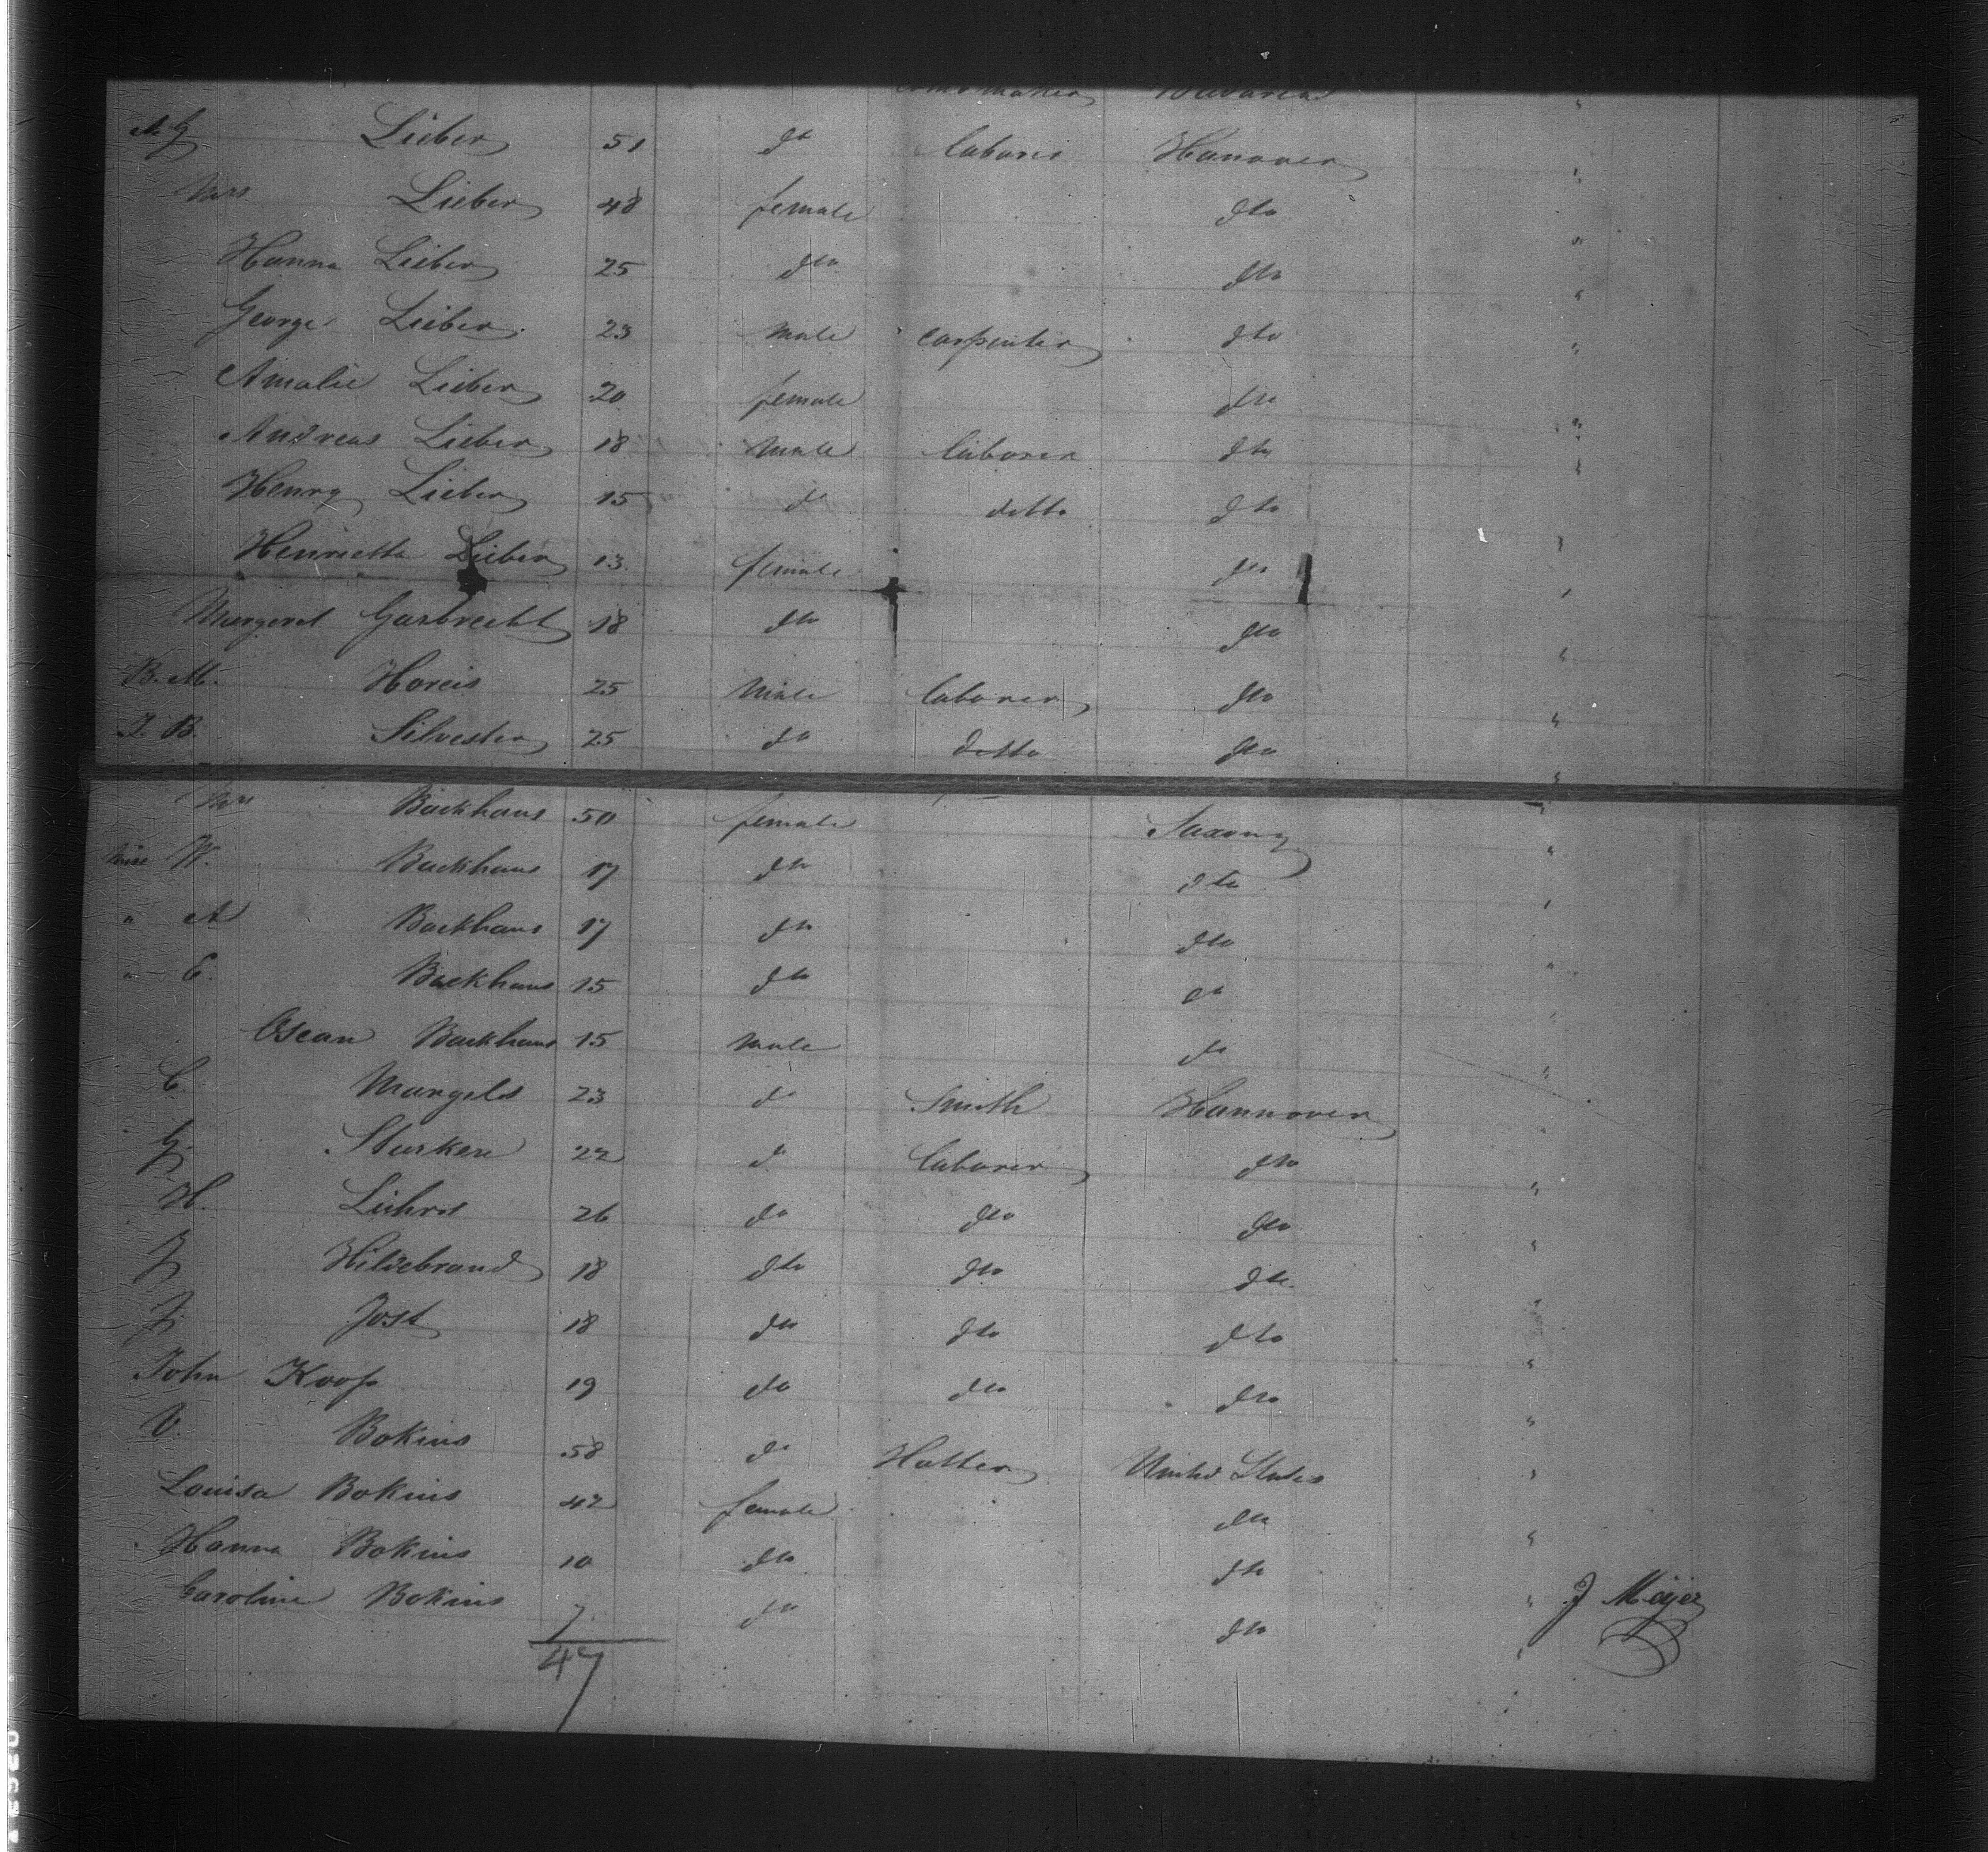 A. G. Lieber 51 do laborer Hanover "
Mrs Lieber 48 female dto "
Hanna Lieber 25 dto dto "
George Lieber 23 male carpenter dto "
Amalie Lieber 20 female dto "
Andreas Lieber 18 male laborer dto "
Henry Lieber 15 do detto dto "
Henrietta Lieber 13 female dto "
Margaret Garbrecht 18 dto dto "
B. M. Horeis 25 male laborer dto "
J. B. Silvester 25 do detto dto "
Mrs Backhaus 50 female Saxony "
Miss W. Backhaus 17 dto dto "
" A Backhaus 17 dto dto "
" E. Backhaus 15 dto do "
Oscar Backhaus 15 male do "
C. Mangels 23 do Smith Hannover "
G. Sturken 22 do laborer dto "
H. Lührs 26 do dto dto "
J Hildebrand 18 dto dto dto "
J. Jost 18 dto dto dto "
John Koop 19 do dto dto "
V. Bokins 58 do Hatter United States "
Louisa Bokins 42 female dto "
Hanna Bokins 10 dto dto "
Caroline Bokins 7 dto dto "
J Meyer
47